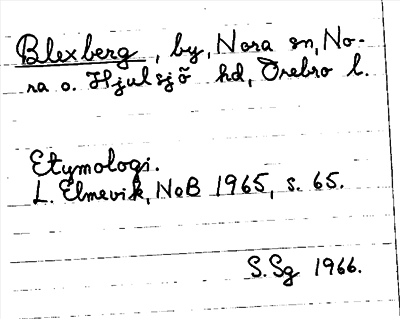 Blexberg, by, Nora sn, No-
ra o. Hjulsjö hd, Örebro l.
Etymologi.
L. Elmevik, NoB 1965, s. 65.
S.Sg 1966.